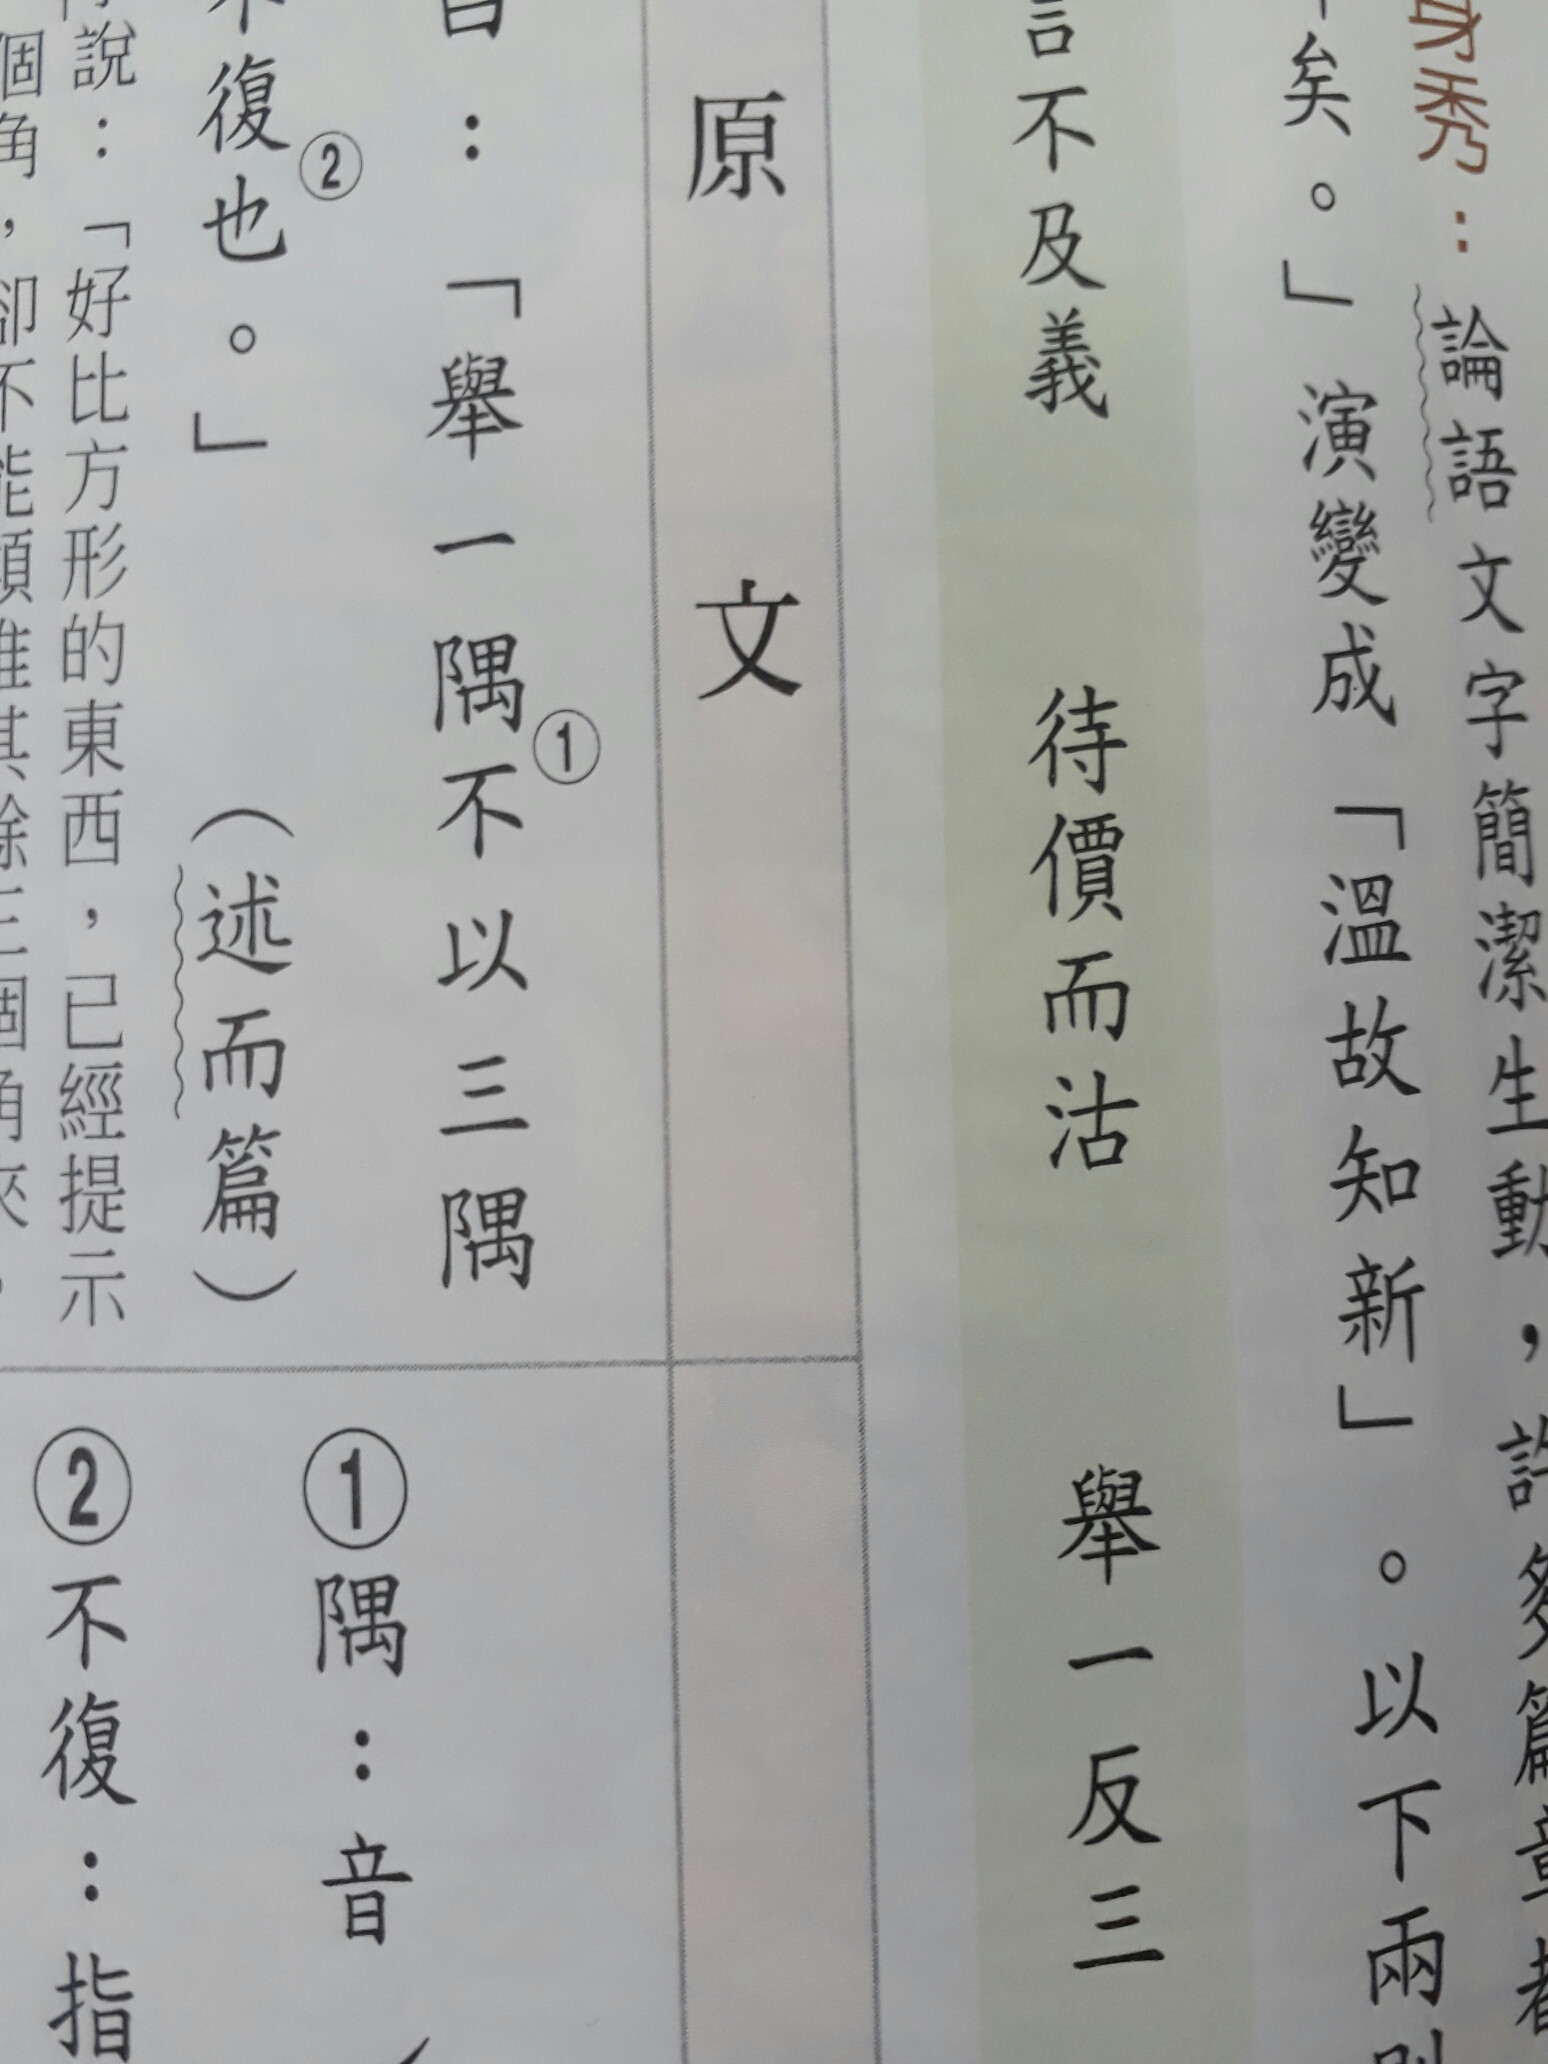 身秀：論語文字簡潔生動，許多篇章都
矣。」演變成「溫故知新」。以下兩則
言不及義　待價而沽　舉一反三
原文
曰：「舉一隅①不以三隅
不復②也。」　（述而篇）
說：「好比方形的東西，已經提示
個角，卻不能類推其餘三個角來，
①隅：音
②不復：指